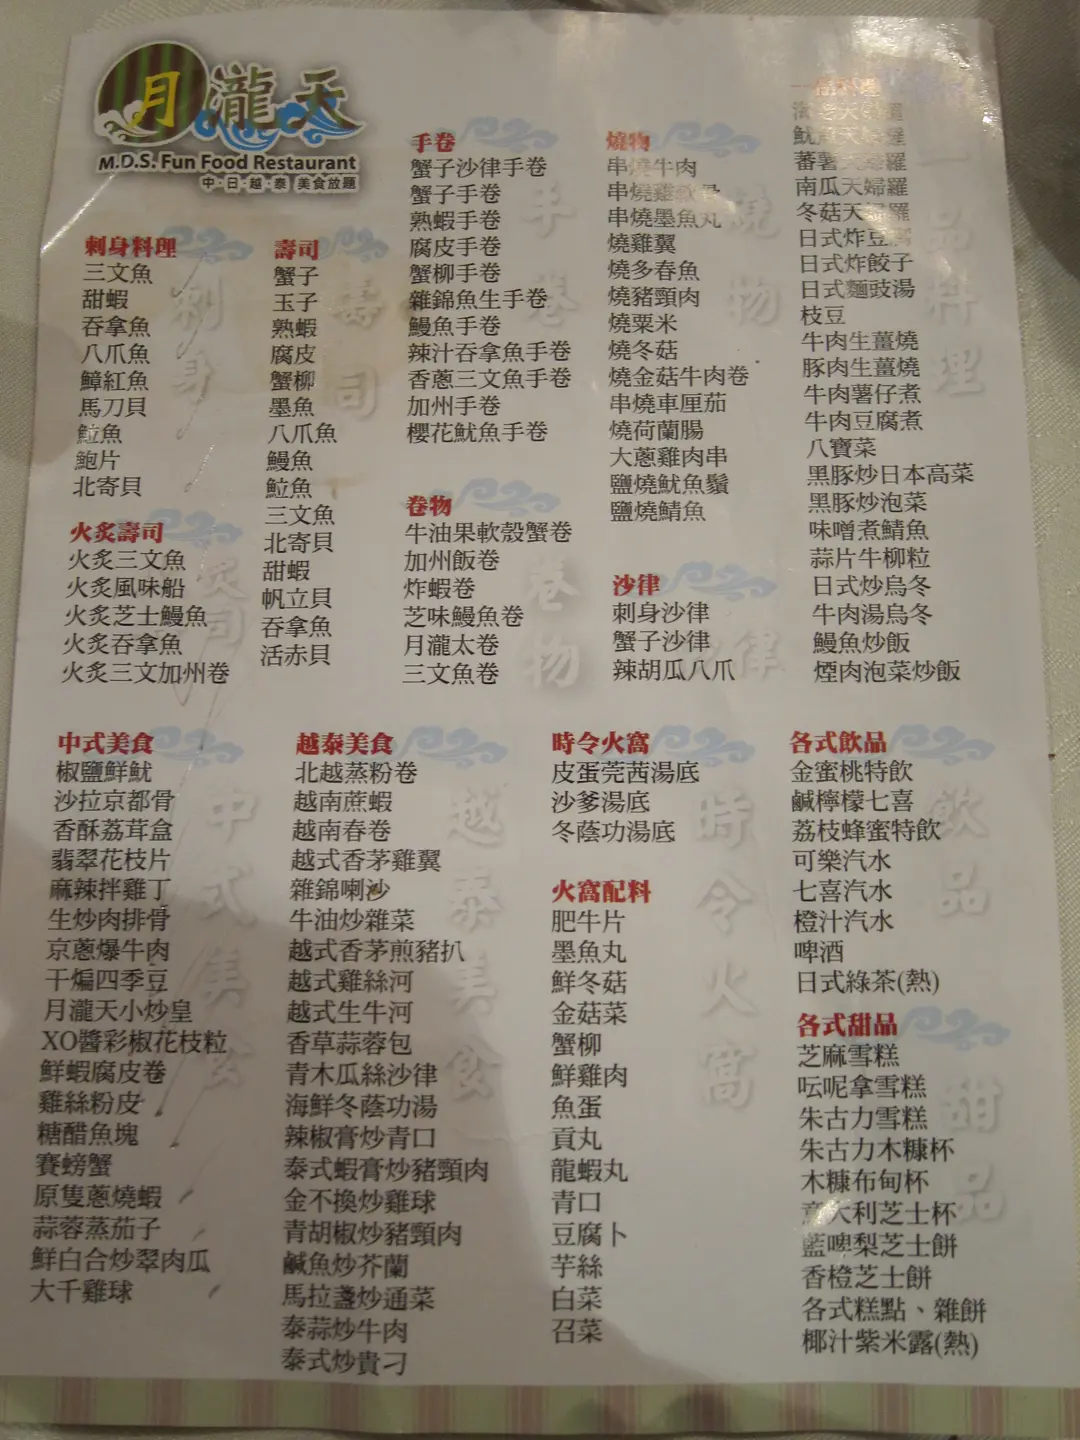 月瀧天
M.D.S. Fun Food Restaurant
中·日·越·泰 美食放題
刺身料理
三文魚
甜蝦
吞拿魚
八爪魚
鱆紅魚
馬刀貝
鮍魚
鮑片
北寄貝
火炙壽司
火炙三文魚
火炙風味船
火炙芝士鰻魚
火炙吞拿魚
火炙三文加州卷
壽司
蟹子
玉子
熟蝦
腐皮
蟹柳
墨魚
八爪魚
鰻魚
鮍魚
三文魚
北寄貝
甜蝦
帆立貝
吞拿魚
活赤貝
手卷
蟹子沙律手卷
蟹子手卷
熟蝦手卷
腐皮手卷
蟹柳手卷
雜錦魚生手卷
鰻魚手卷
辣汁吞拿魚手卷
香蔥三文魚手卷
加州手卷
櫻花魷魚手卷
卷物
牛油果軟殼蟹卷
加州飯卷
炸蝦卷
芝味鰻魚卷
月瀧太卷
三文魚卷
燒物
串燒牛肉
串燒雞軟骨
串燒墨魚丸
燒雞翼
燒多春魚
燒豬頸肉
燒粟米
燒冬菇
燒金菇牛肉卷
串燒車厘茄
燒荷蘭腸
大蔥雞肉串
鹽燒魷魚鬚
鹽燒鯖魚
沙律
刺身沙律
蟹子沙律
辣胡瓜八爪
蕃薯天婦羅
南瓜天婦羅
冬菇天婦羅
日式炸豆腐
日式炸餃子
日式麵豉湯
枝豆
牛肉生薑燒
豚肉生薑燒
牛肉薯仔煮
牛肉豆腐煮
八寶菜
黑豚炒日本高菜
黑豚炒泡菜
味噌煮鯖魚
蒜片牛柳粒
日式炒烏冬
牛肉湯烏冬
鰻魚炒飯
煙肉泡菜炒飯
中式美食
椒鹽鮮魷
沙拉京都骨
香酥荔茸盒
翡翠花枝片
麻辣拌雞丁
生炒肉排骨
京蔥爆牛肉
干煸四季豆
月瀧天小炒皇
XO醬彩椒花枝粒
鮮蝦腐皮卷
雞絲粉皮
糖醋魚塊
賽螃蟹
原隻蔥燒蝦
蒜蓉蒸茄子
鮮白合炒翠肉瓜
大千雞球
越泰美食
北越蒸粉卷
越南蔗蝦
越南春卷
越式香茅雞翼
雜錦喇沙
牛油炒雜菜
越式香茅煎豬扒
越式雞絲河
越式生牛河
香草蒜蓉包
青木瓜絲沙律
海鮮冬蔭功湯
辣椒膏炒青口
泰式蝦膏炒豬頸肉
金不換炒雞球
青胡椒炒豬頸肉
鹹魚炒芥蘭
馬拉盞炒通菜
泰蒜炒牛肉
泰式炒貴刁
時令火窩
皮蛋莞茜湯底
沙爹湯底
冬蔭功湯底
火窩配料
肥牛片
墨魚丸
鮮冬菇
金菇菜
蟹柳
鮮雞肉
魚蛋
貢丸
龍蝦丸
青口
豆腐卜
芋絲
白菜
召菜
各式飲品
金蜜桃特飲
鹹檸檬七喜
荔枝蜂蜜特飲
可樂汽水
七喜汽水
橙汁汽水
啤酒
日式綠茶(熱)
各式甜品
芝麻雪糕
呍呢拿雪糕
朱古力雪糕
朱古力木糠杯
木糠布甸杯
意大利芝士杯
藍啤梨芝士餅
香橙芝士餅
各式糕點、雜餅
椰汁紫米露(熱)